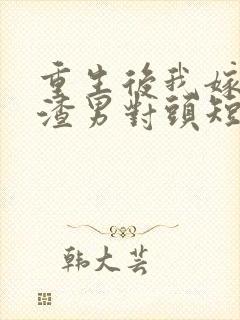 重生後我嫁
渣男對頭短
韩大芸